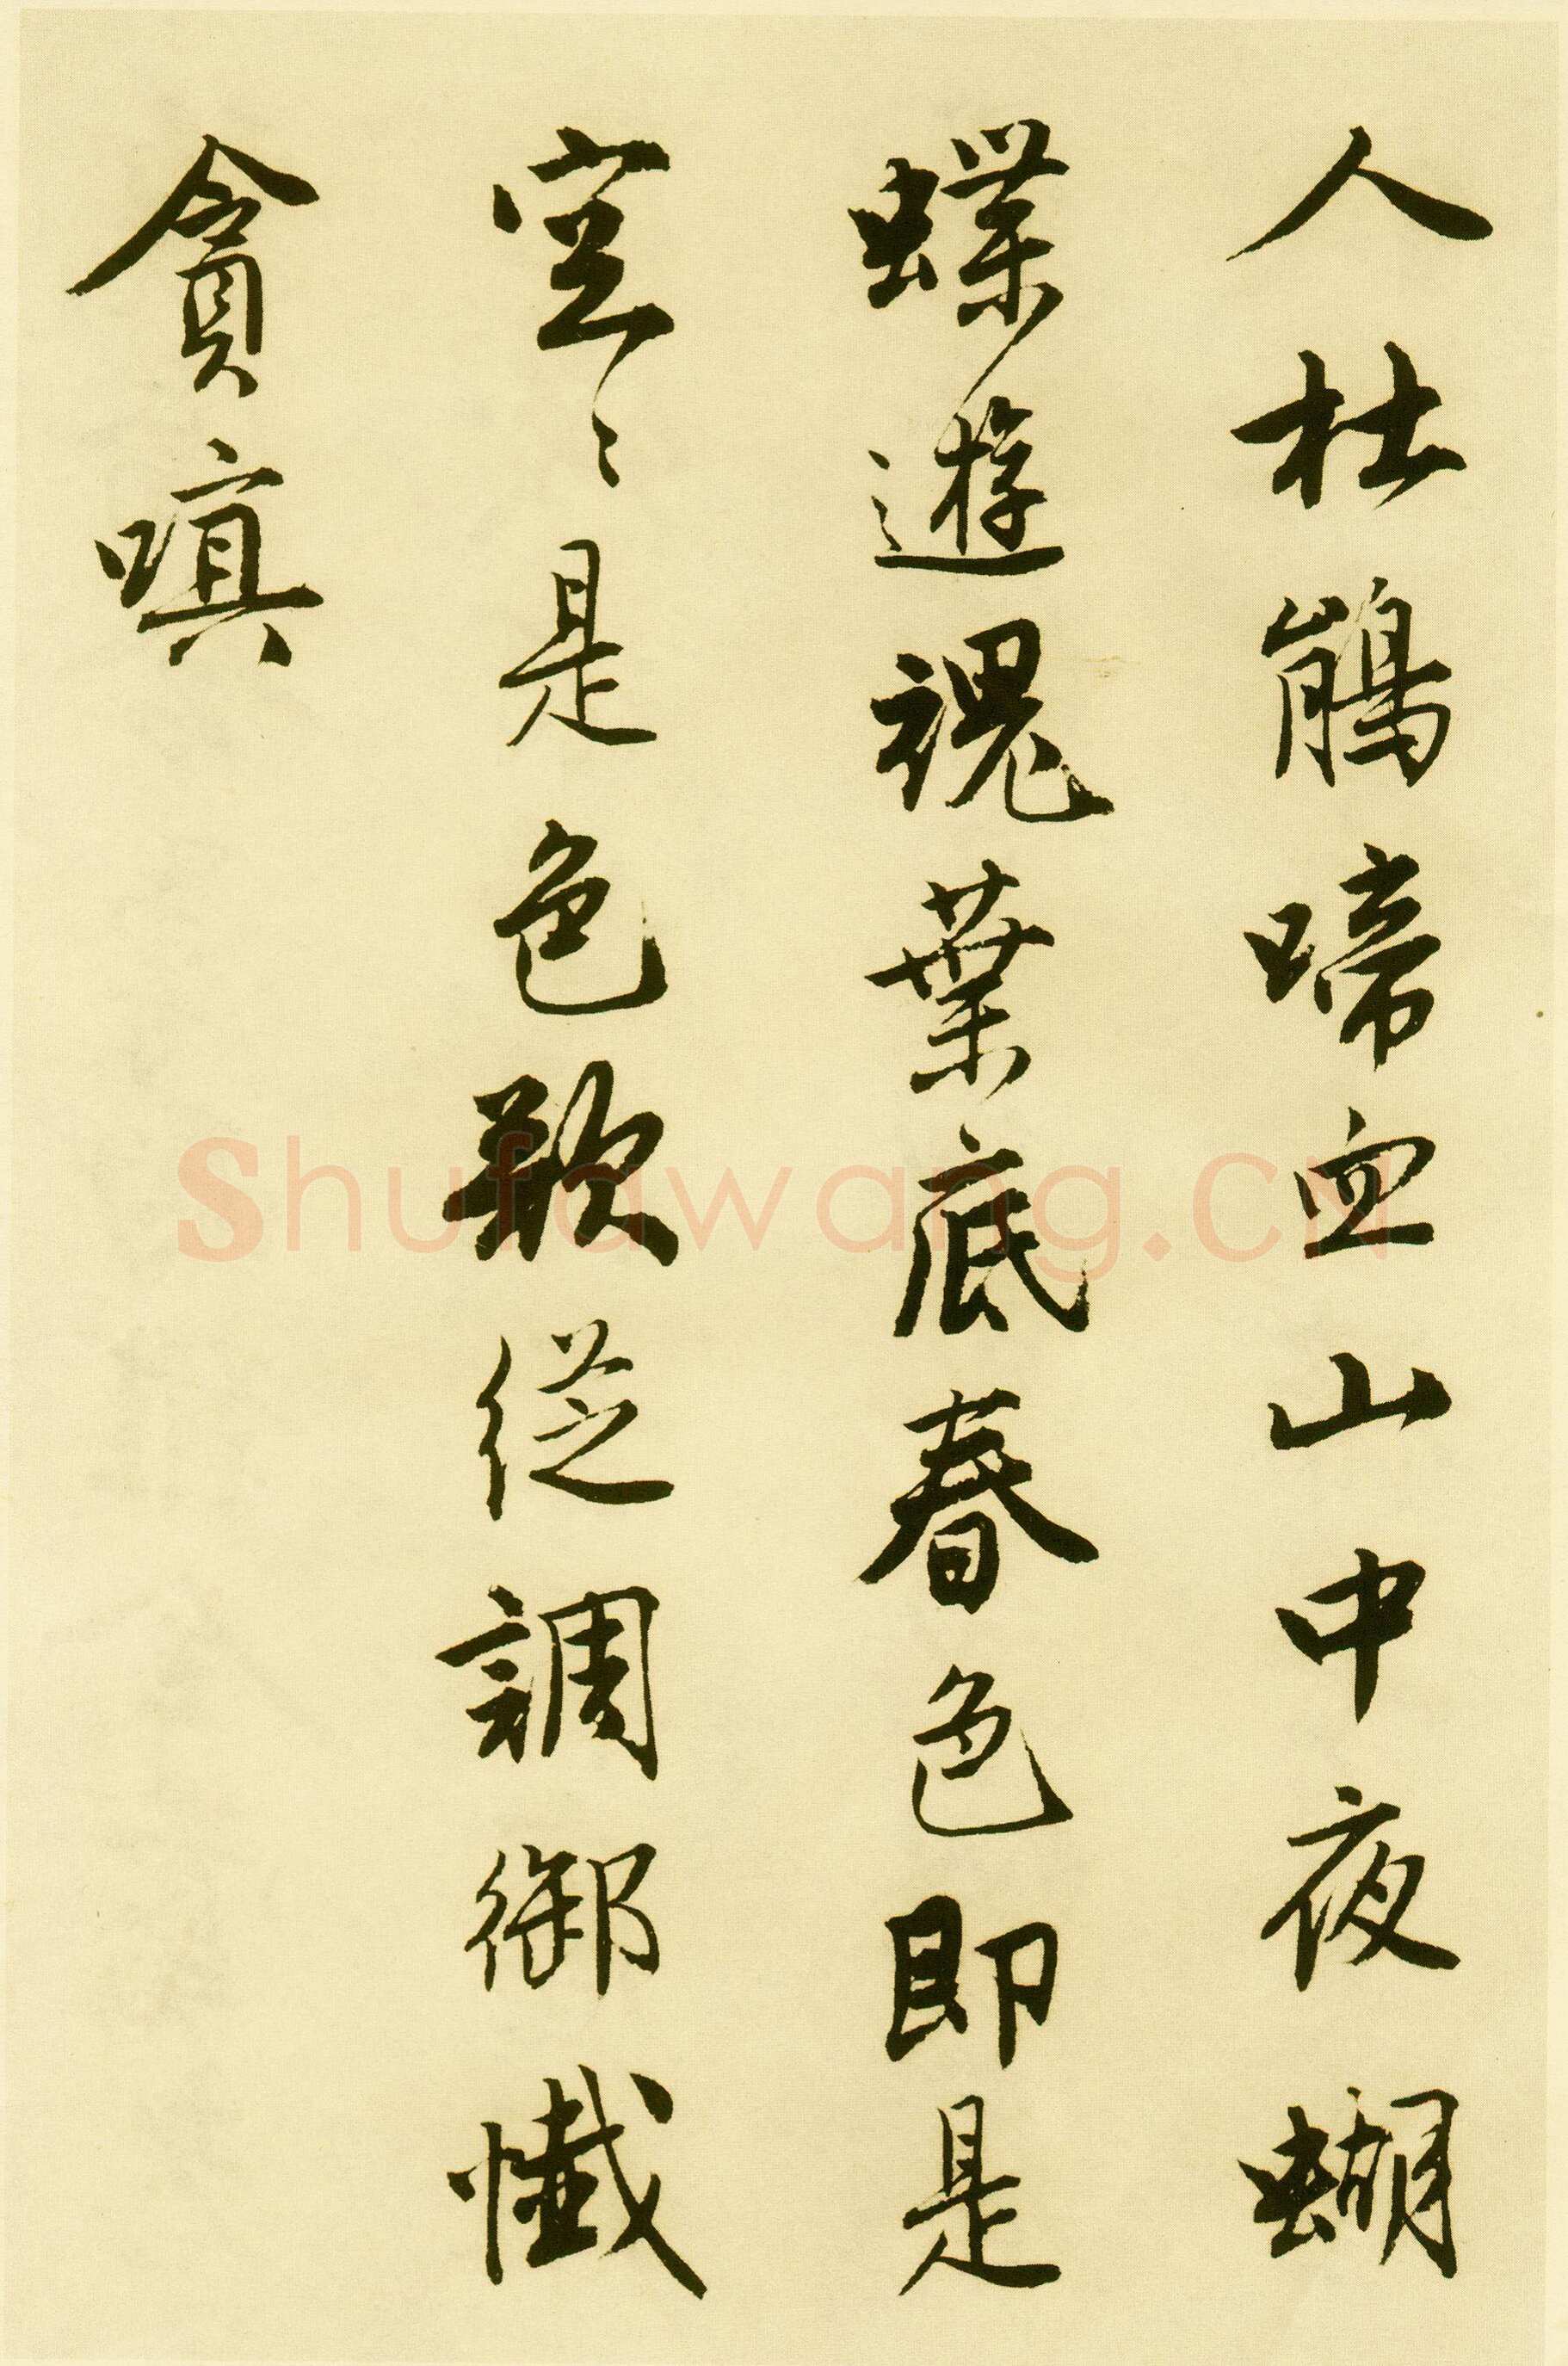 人杜鵑啼血山中夜蝴
蝶遊魂葉底春色即是
空〻是色歌從調御懺
貪嗔
Shufawang.CN